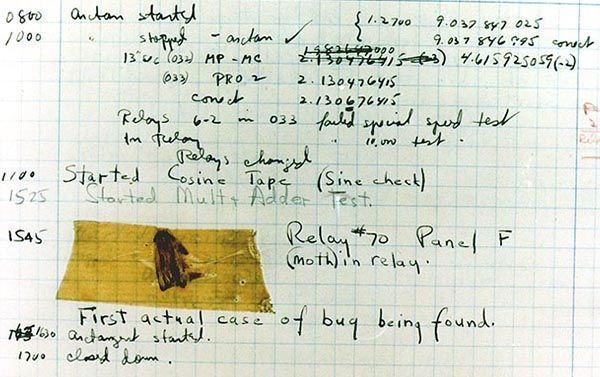 0800 arctan started { 1.2700 9.037 847 025
1000 " stopped - arctan ✓ 9.037 846 995 conect
13" uc (032) MP - MC 2.130476415 (-3) 4.615925059(-2)
(033) PRO 2 2.130476415
conect 2.130676415
Relays 6-2 in 033 failed special speed test
In Relay " 10,000 test .
Relays changed
1100 Started Cosine Tape (Sine check)
1525 Started Mult + Adder Test.
1545 Relay #70 Panel F
(moth) in relay.
First actual case of bug being found.
1630 arctangent started.
1700 closed down.